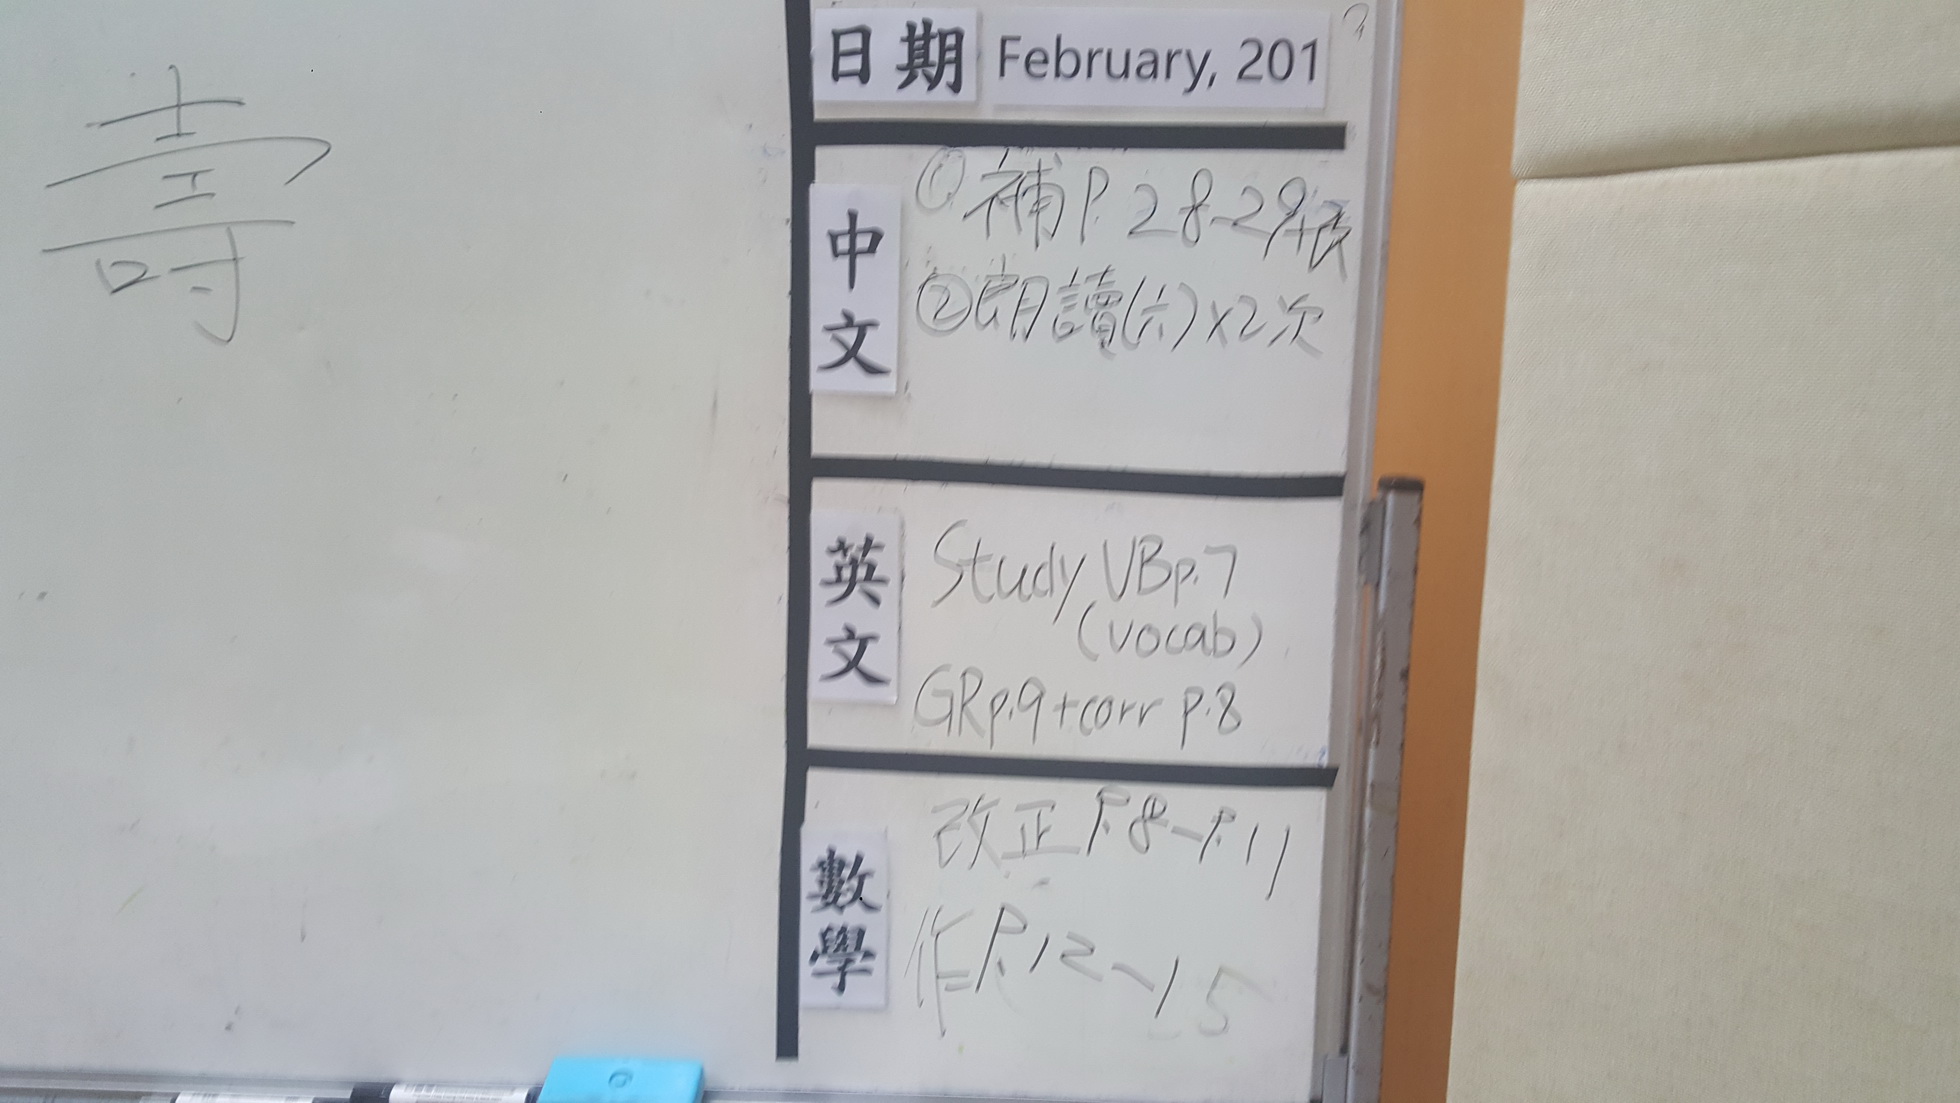 壽
日期 February, 201
中文
① 補 P. 28-29+
② 朗讀(六)x2次
英文
Study VBp.7
(vocab)
GRp.9+corr p.8
數學
改正 P.8-P.11
作 P.12~15